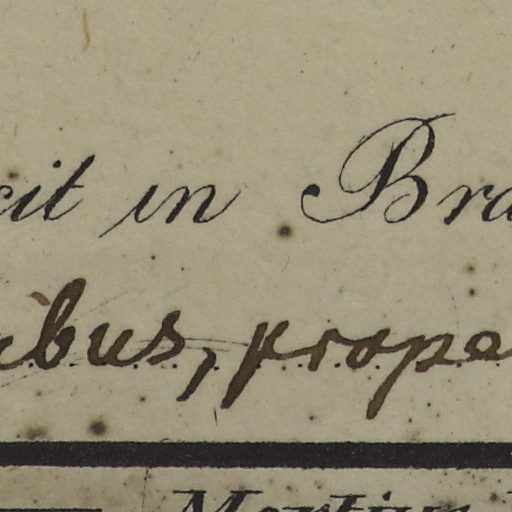 cit in Bra
bus, prope
Martius